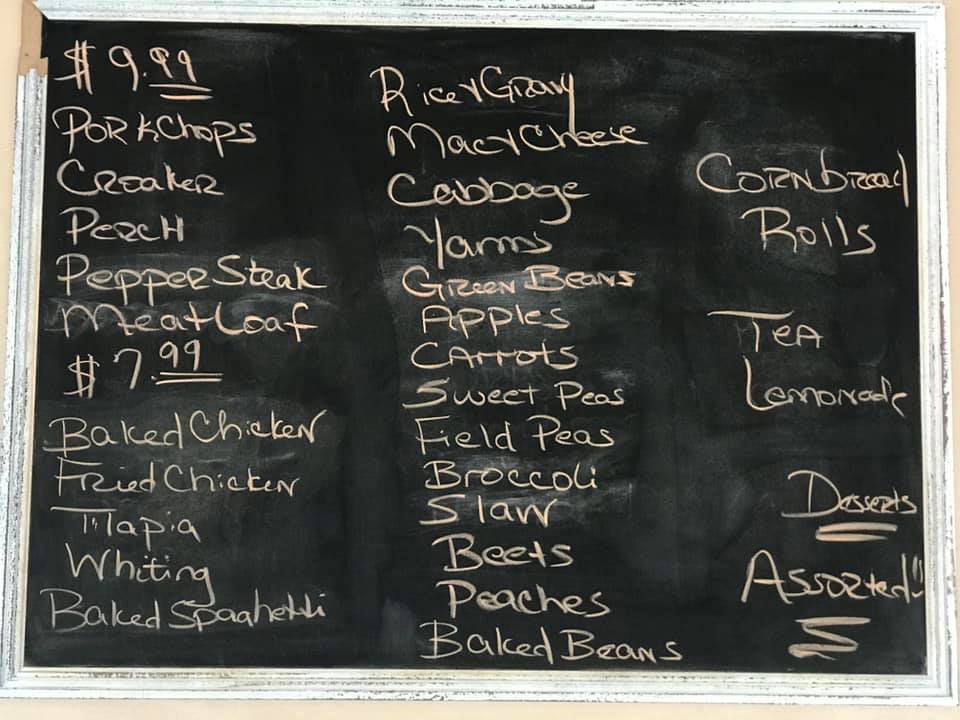 $ 9.99
PORKChops
Croaker
PERCH
Pepper Steak
Meat Loaf
$ 7.99
Baked Chicken
Fried Chicken
Tilapia
Whiting
Baked Spaghetti
Rice & Gravy
Mac & Cheese
Cabbage
Yams
Green Beans
Apples
Carrots
Sweet Peas
Field Peas
Broccoli
Slaw
Beets
Peaches
Baked Beans
Cornbread
Rolls
TEA
Lemonade
Desserts
Assorted!!